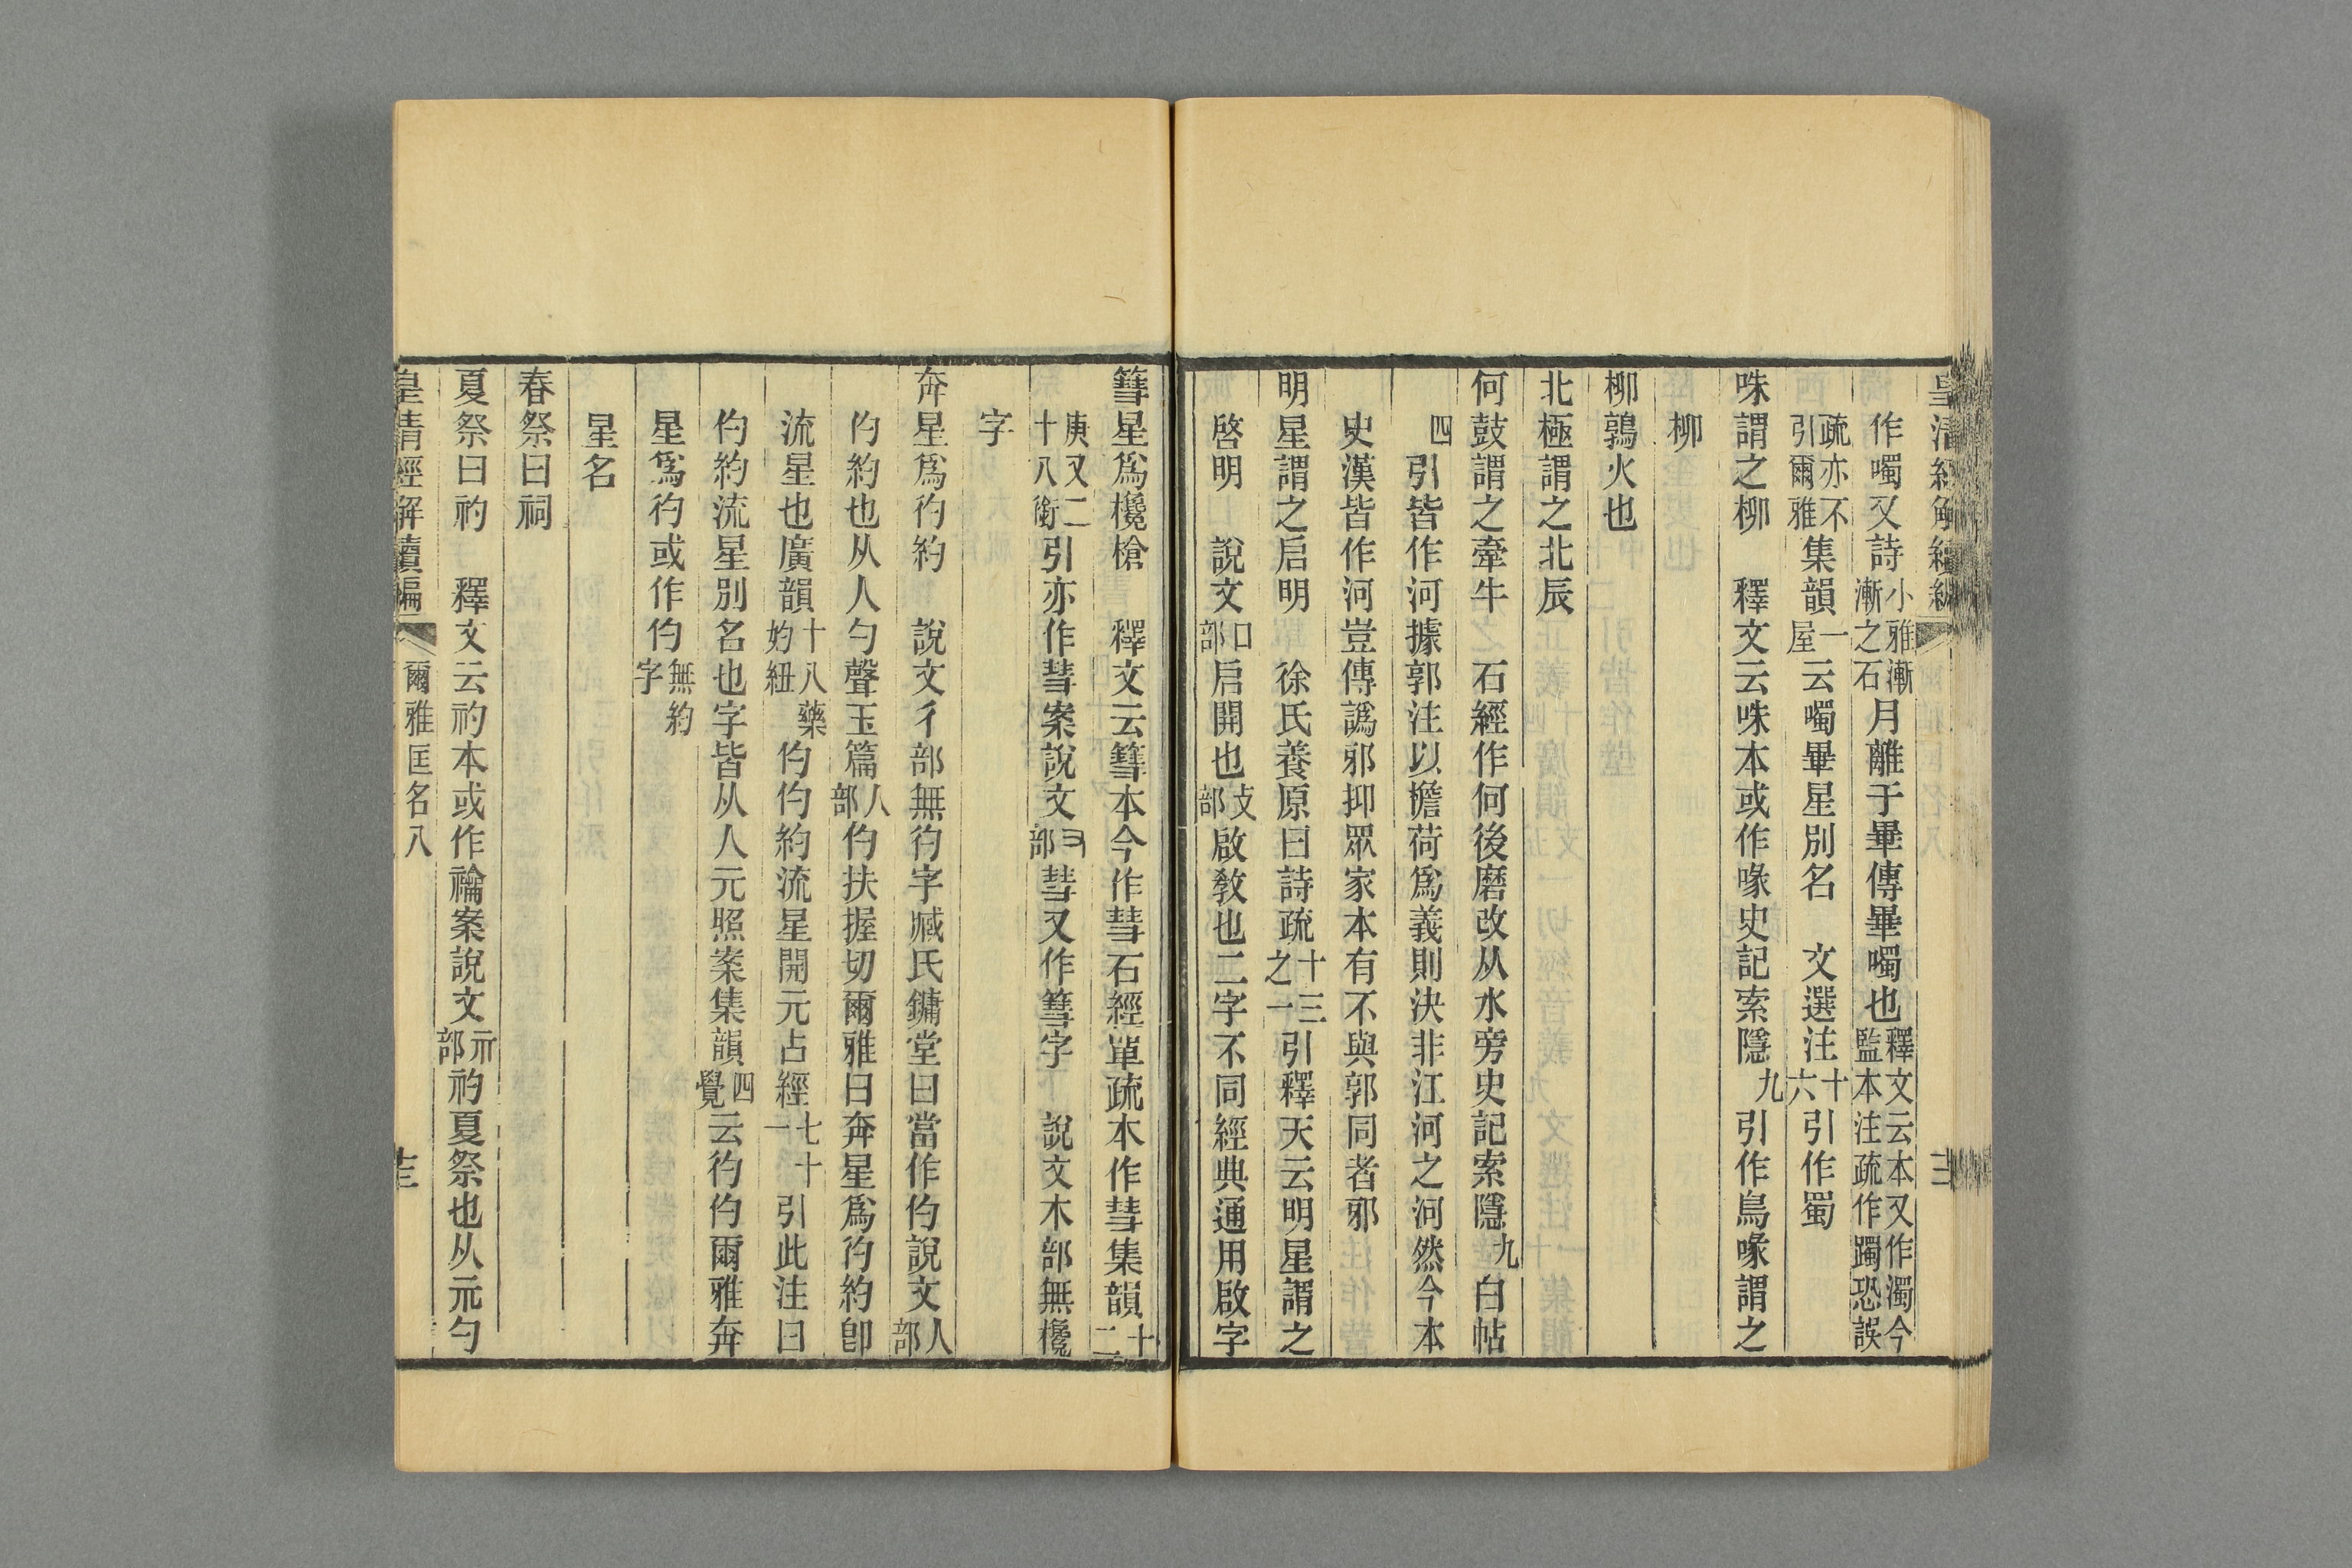 作噣又詩小雅漸漸之石月離于畢傳畢噣也釋文云本又作濁今監本注疏作躅恐誤
疏亦不引爾雅集韻一屋云噣畢星別名　文選注十六引作蜀
咮謂之柳　釋文云咮本或作喙史記索隱九引作鳥喙謂之
柳
柳鶉火也
北極謂之北辰
何鼓謂之牽牛　石經作何後磨改从水旁史記索隱九白帖
四引皆作河據郭注以擔荷爲義則決非江河之河然今本
史漢皆作河豈傳譌邪抑眾家本有不與郭同者邪
明星謂之启明　徐氏養原曰詩疏十三之一引釋天云明星謂之
啓明　說文口部启開也攴部啟敎也二字不同經典通用啟字
篲星爲欃槍　釋文云篲本今作彗石經單疏本作彗集韻十二
庚又二十八銜引亦作彗案說文⺕部彗又作篲字　說文木部無欃
字
奔星爲彴約　說文彳部無彴字臧氏鏞堂曰當作仢說文人部
仢約也从人勺聲玉篇人部仢扶握切爾雅曰奔星爲彴約卽
流星也廣韻十八藥妁紐仢仢約流星開元占經七十一引此注曰
仢約流星別名也字皆从人元照案集韻四覺云彴仢爾雅奔
星爲彴或作仢無約字
星名
春祭曰祠
夏祭曰礿　釋文云礿本或作禴案說文示部礿夏祭也从示勺
皇清經解續編　爾雅匡名八